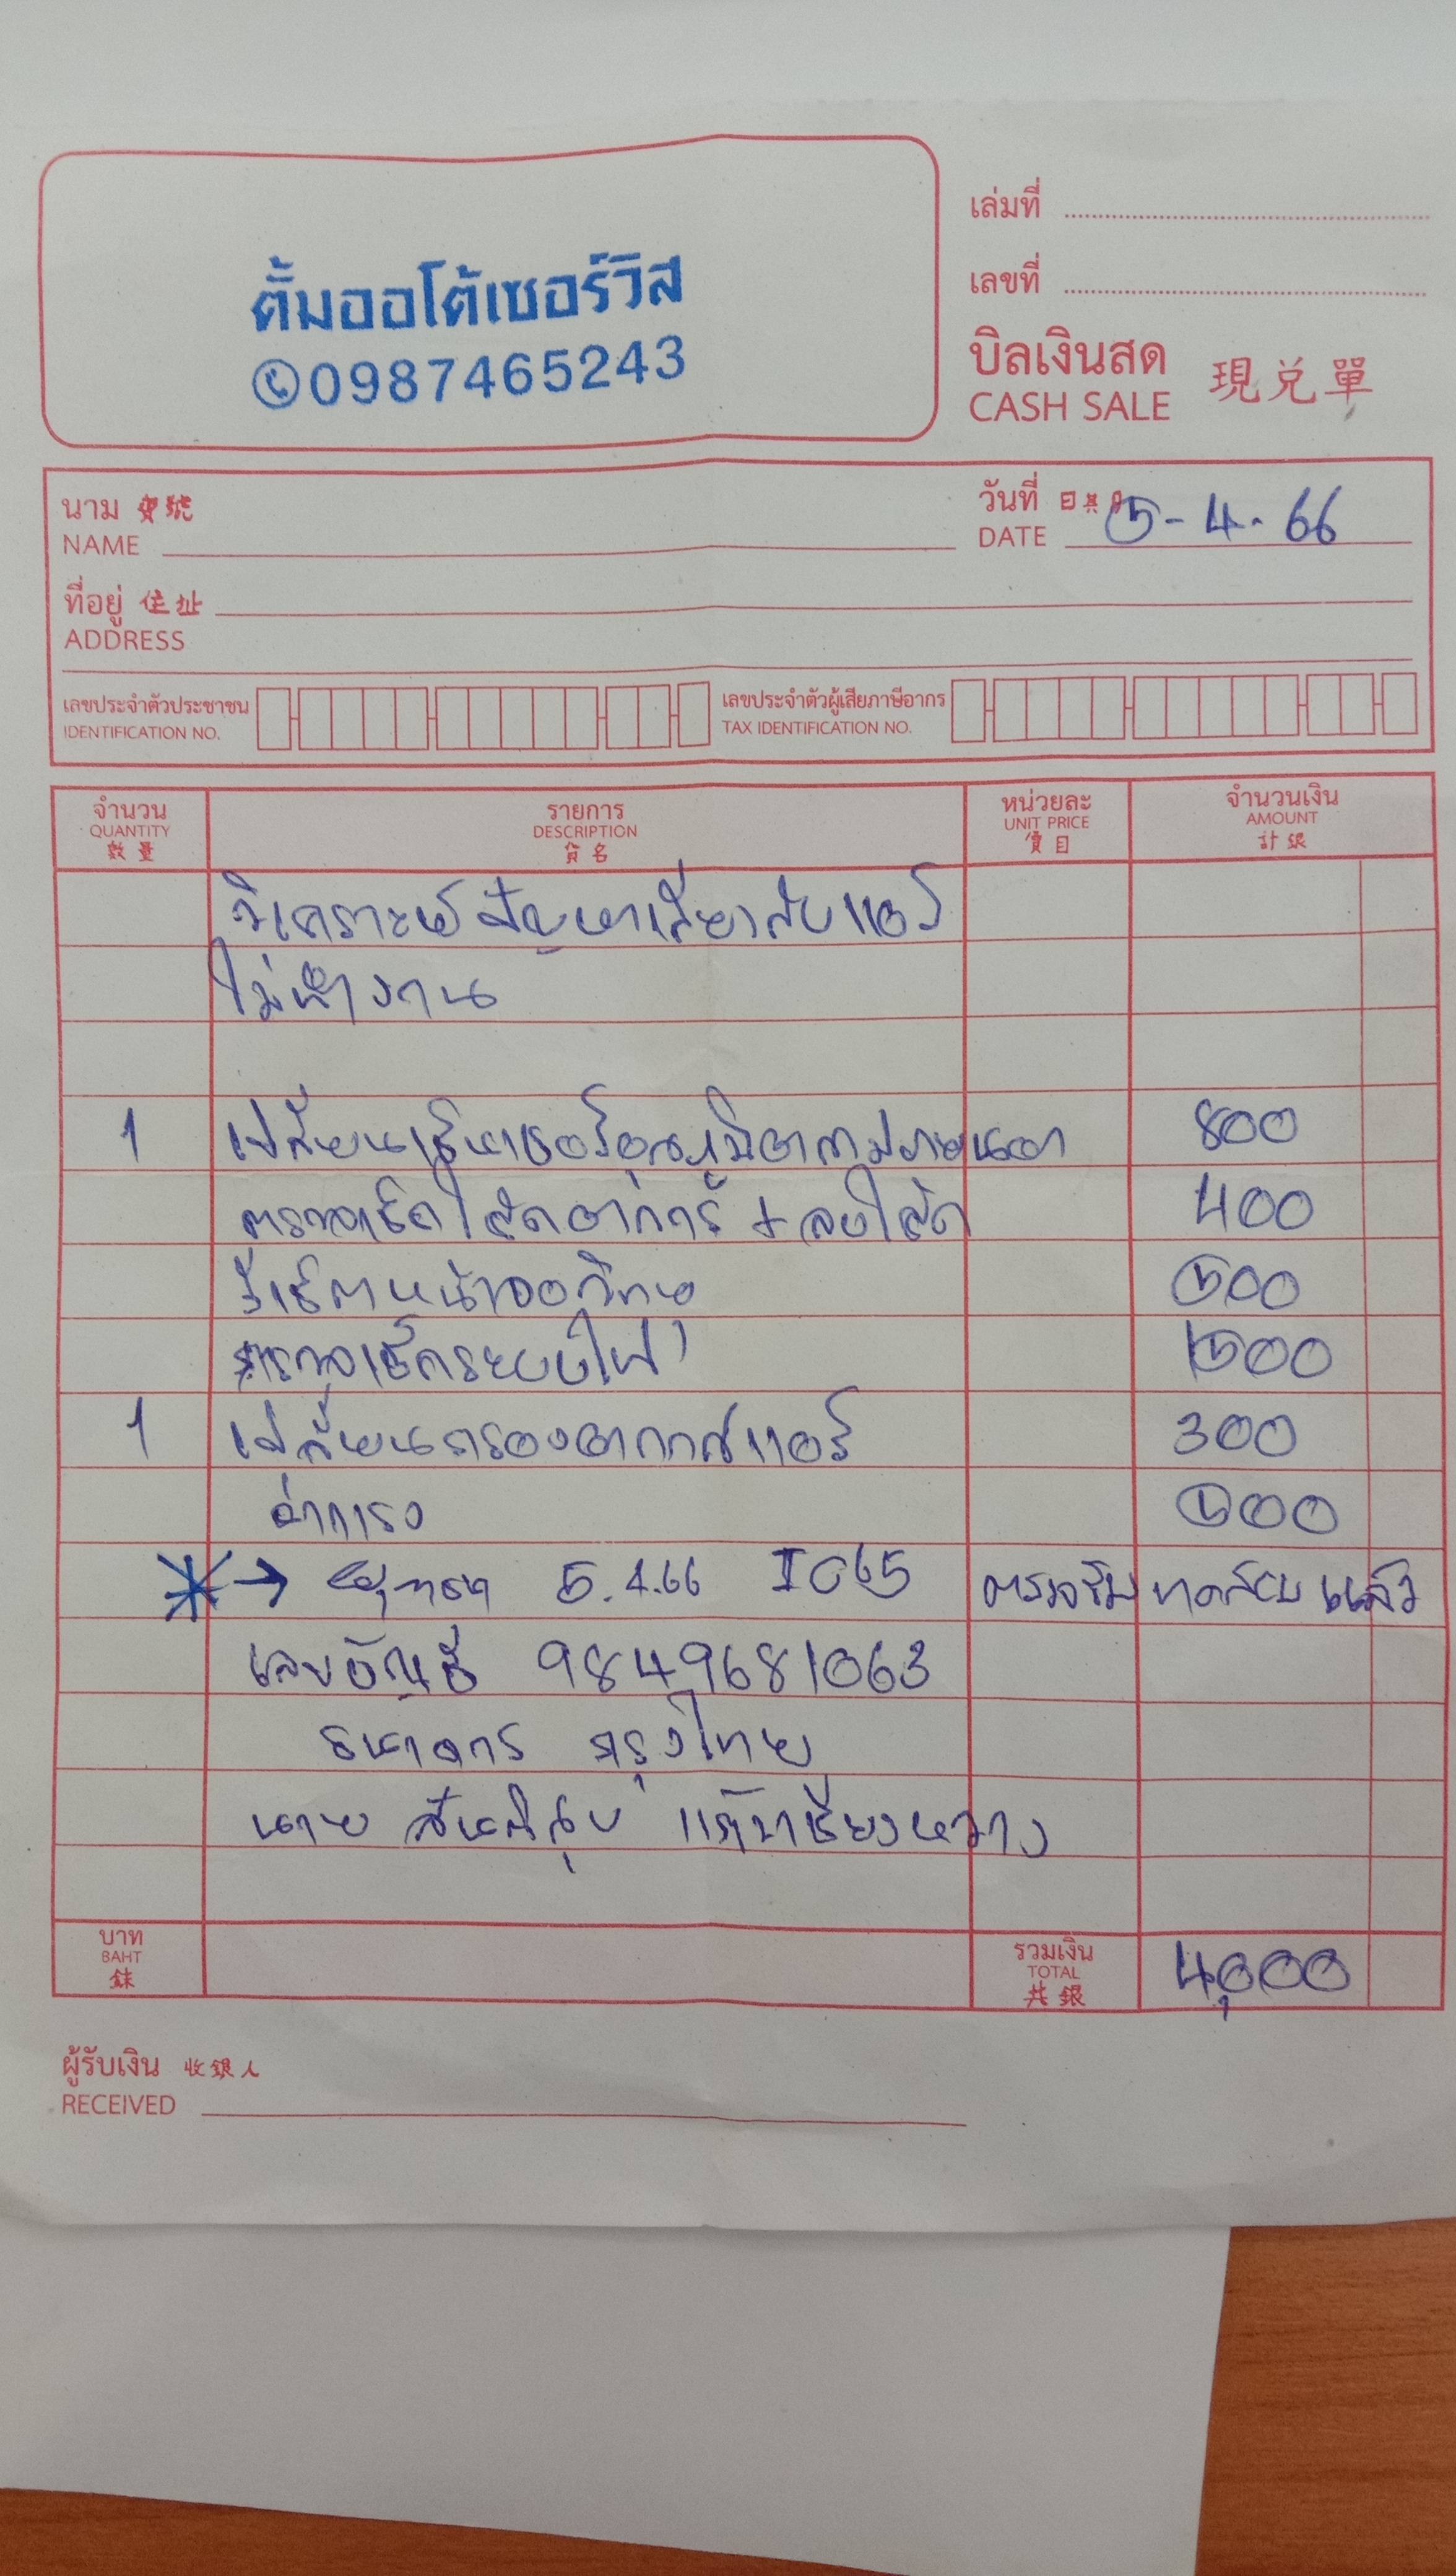 ตั้มออโต้เซอร์วิส
0987465243
เล่มที่
เลขที่
บิลเงินสด
CASH SALE 現兌單
นาม 寶號
NAME
วันที่ 日期
DATE 5-4-66
ที่อยู่ 住址
ADDRESS
เลขประจำตัวประชาชน
IDENTIFICATION NO.
เลขประจำตัวผู้เสียภาษีอากร
TAX IDENTIFICATION NO.
จำนวน รายการ หน่วยละ จำนวนเงิน
QUANTITY DESCRIPTION UNIT PRICE AMOUNT
數量 貨名 價目 計銀
วิเคราะห์ปัญหาเสียวสับแอร์
ไม่ทำงาน
1 เปลี่ยนเซ็นเซอร์อุณภูมิอากาศภายนอก 800
ตรวจเช็ค ใส้ดอาการ์ + ลบใส้ด 400
รีเซ็ตหน้าจอวิทยุ 500
ตรวจเช็คระบบไฟ 1500
1 เปลี่ยนกรองอากาศแอร์ 300
ค่าแรง 500
→ 5.4.66 IC65 ตรวจรับ ทดสอบ แล้ว
เลขบัญชี 9849681063
ธนาคาร กรุงไทย
นาย สันติสุข แก้วเชียงหวาง
บาท
BAHT
銖
รวมเงิน
TOTAL 4,000
共銀
ผู้รับเงิน 收銀人
RECEIVED